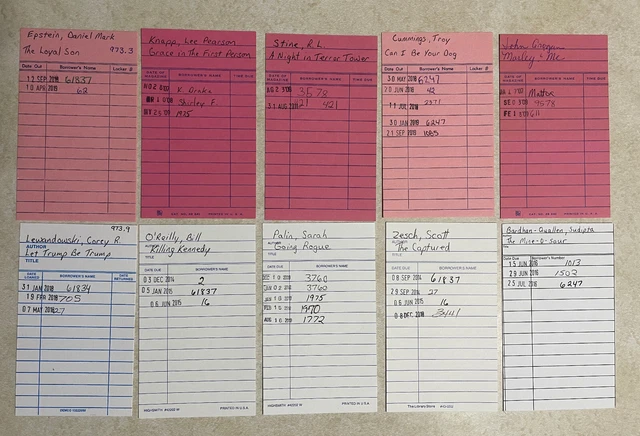 Epstein, Daniel Mark
The Loyal Son 973.3
Date Out Borrower's Name Locker #
12 SEP 2018 61837
10 APR 2018 62
Knupp, Lee Pearson
Grace in The First Person
DATE OF MAGAZINE BORROWER'S NAME TIME DUE
V. Drake
Shirley F.
1975
Stine, R.L.
A Night in Terror Tower
DATE OF MAGAZINE BORROWER'S NAME TIME DUE
3578
31 AUG 421
Cummings, Troy
Can I Be Your Dog
Date Out Borrower's Name Locker #
30 MAY 6247
20 JUN 2018 42
11 JUL 2371
30 JAN 2018 6247
21 SEP 1085
John Grogan
Marley & Me
DATE OF MAGAZINE BORROWER'S NAME TIME DUE
Mattox
9578
611
973.9
Lewandowski, Corey R.
AUTHOR
Let Trump Be Trump
TITLE
DATE LOANED BORROWER'S NAME DATE RETURNED
31 JAN 2018 61834
19 FEB 2018 705
07 MAY 2018 27
O'Reilly, Bill
AUTHOR
Killing Kennedy
TITLE
DATE DUE BORROWER'S NAME
03 DEC 2014 2
05 JAN 2015 61837
06 JUN 2015 16
HIGHSMITH #42202 W PRINTED IN U.S.A.
Palin, Sarah
AUTHOR
Going Rogue
TITLE
DATE DUE BORROWER'S NAME
DEC 10 3760
JAN 02 3760
1975
FEB 16 1970
AUG 10 1772
HIGHSMITH #42202 W PRINTED IN U.S.A.
Zesch, Scott
AUTHOR
The Captured
TITLE
DATE DUE BORROWER'S NAME
08 SEP 2014 61837
29 SEP 2014 27
06 JUN 2015 16
08 DEC 2018 3441
The Library Store
Bardhan-Quallen, Sudipta
The Mine-O-Saur
Title
Date Due Borrower's Number
15 JUN 2018 1013
29 JUN 2018 1502
25 JUL 2018 6247